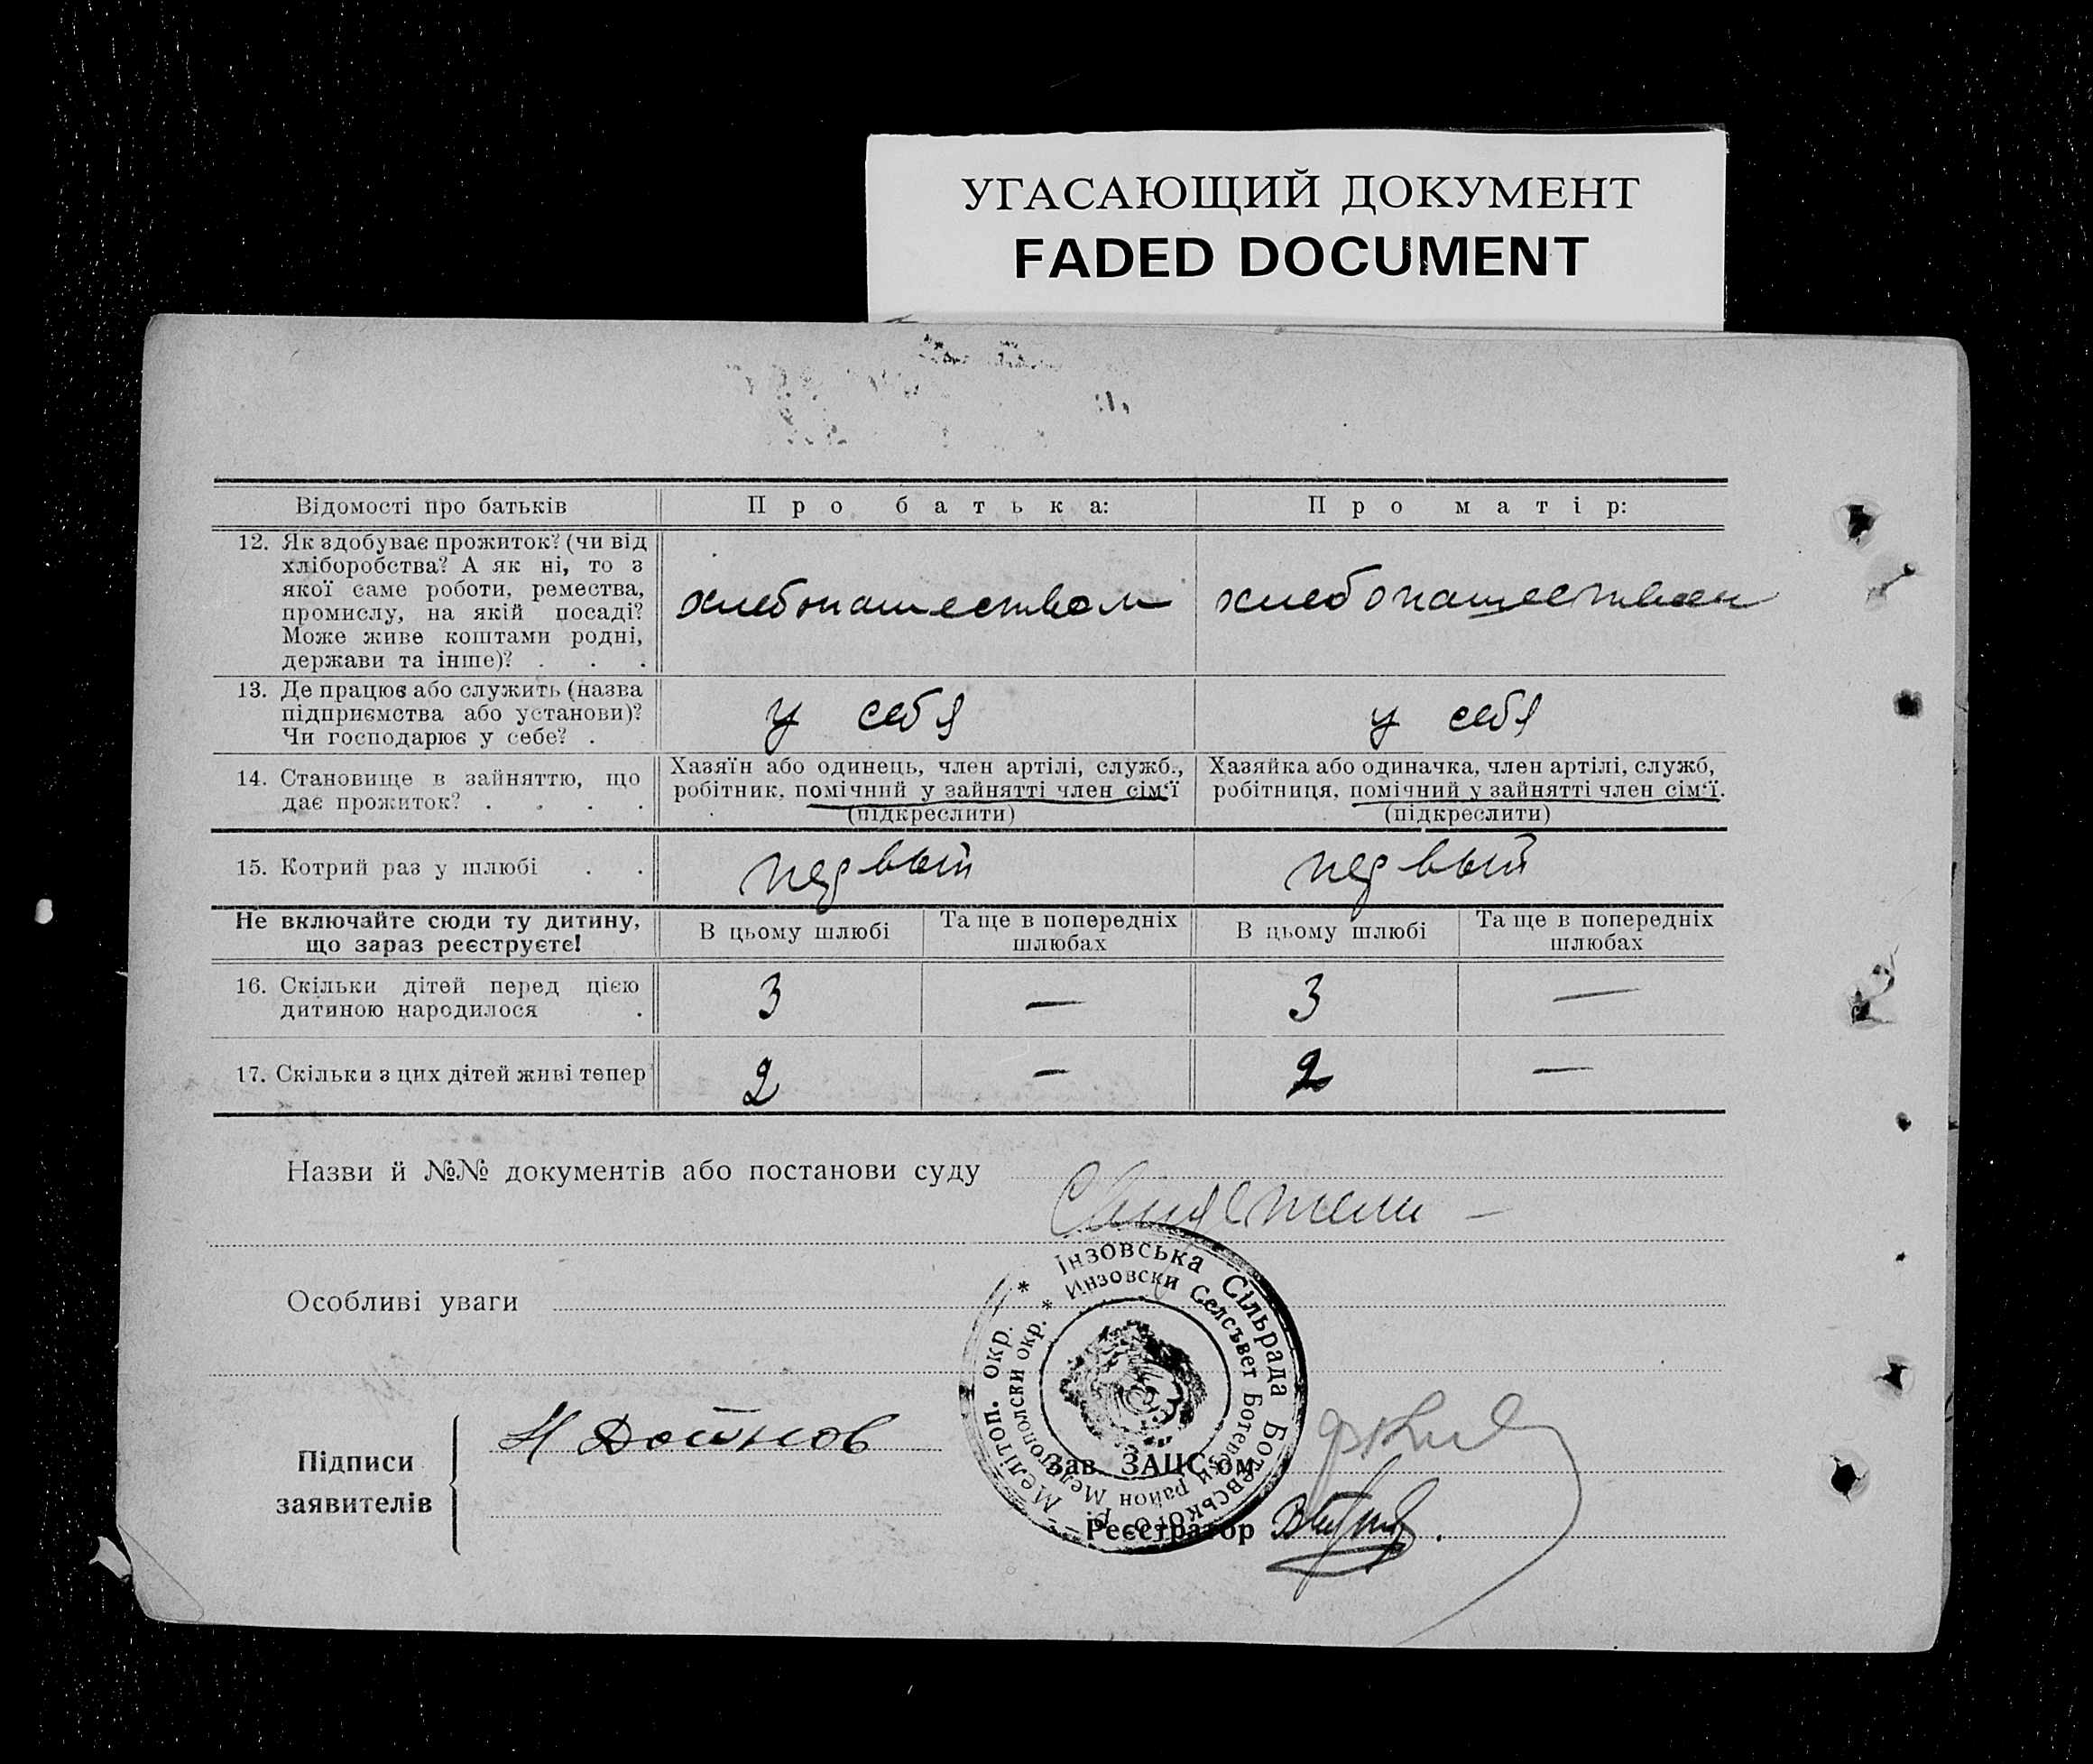 УГАСАЮЩИЙ ДОКУМЕНТ
FADED DOCUMENT
Відомості про батьків
Про батька:
Про матір:
12. Як здобуває прожиток? (чи від
хліборобства? А як ні, то з
якої саме роботи, ремества,
промислу, на якій посаді?
Може живе коштами родні,
держави та інше)? . . .
хлебопашеством
хлебопашеством
13. Де працює або служить (назва
підприємства або установи)?
Чи господарює у себе? .
у себя
у себя
14. Становище в зайняттю, що
дає прожиток? . . . .
Хазяїн або одинець, член артілі, служб.,
робітник, помічний у зайнятті член сім‘ї
(підкреслити)
Хазяйка або одиначка, член артілі, служб,
робітниця, помічний у зайнятті член сім‘ї.
(підкреслити)
15. Котрий раз у шлюбі . .
первый
первый
Не включайте сюди ту дитину,
що зараз реєструєте!
В цьому шлюбі
Та ще в попередніх
шлюбах
В цьому шлюбі
Та ще в попередніх
шлюбах
16. Скільки дітей перед цією
дитиною народилося .
3
—
3
—
17. Скільки з цих дітей живі тепер
2
—
2
—
Назви й №№ документів або постанови суду
Свидетели —
Особливі уваги
Інзовська Сільрада Ботевського р. Мелітоп. окр. *
Инзовски Селсъвет Ботевски район Мелитополски окр. *
Підписи
заявителів
Н Дойнов
Зав. ЗАЦС‘ом
Реєстратор